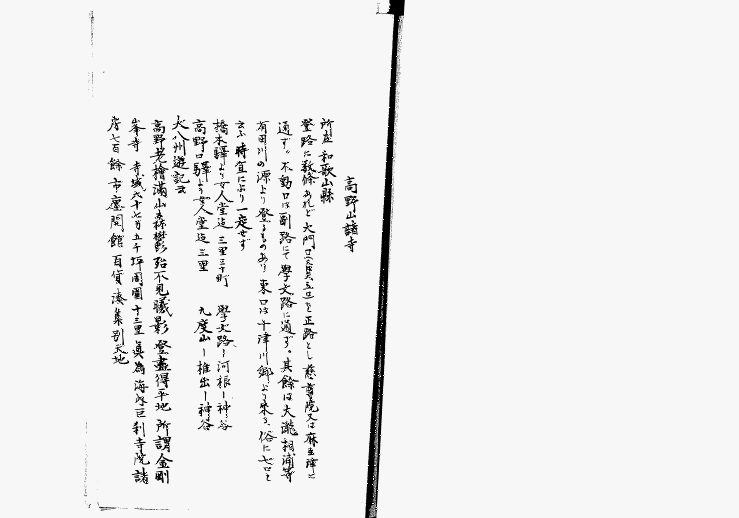 高野山諸寺
所在 和歌山縣
登路に数條あれど 大門口を正路とし 慈尊院又は麻生津に
通ず。不動口は副路にて 學文路に通ず。其餘は大瀧 相浦等
有田川の源より登るものあり 東口は十津川郷より来る、俗に七口と
云ふ 時宜により一定せず
橋本驛より女人堂迄 三里三十町 學文路ー河根ー神谷
高野口驛より女人堂迄 三里 九度山ー椎出ー神谷
大八州遊記云
高野老檜滿山 森欝 殆不見曦影 登盡得平地 所謂金剛
峯寺 寺域六十七万五千坪 周圍十三里 眞為海内巨刹 寺院諸
房七百餘 市廛閲館 百貨湊集 別天地